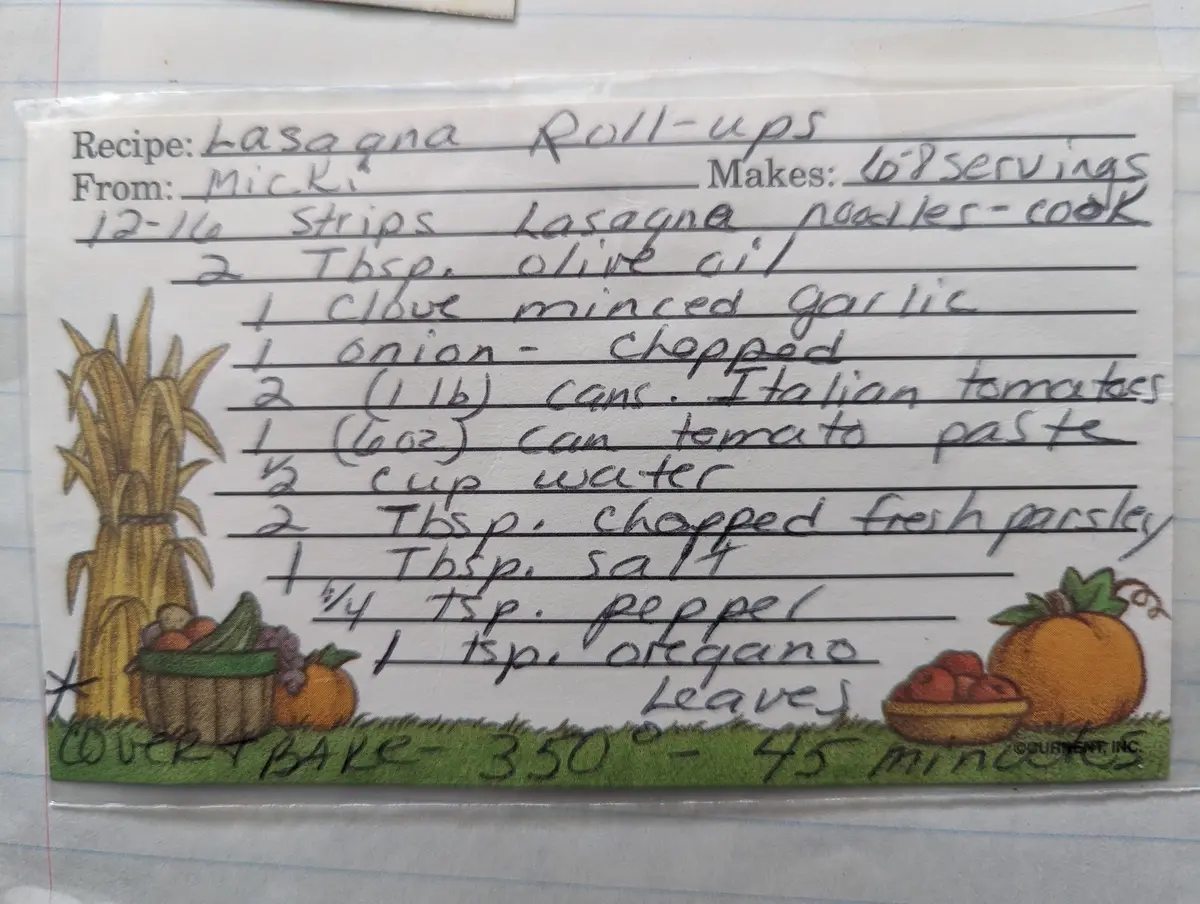 Recipe: Lasagna Roll-ups
From: Micki Makes: 6-8 servings
12-16 Strips Lasagna noodles - cook
2 Tbsp. olive oil
1 clove minced garlic
1 onion - chopped
2 (1 lb) cans. Italian tomatoes
1 (6 oz) can tomato paste
1/2 cup water
2 Tbsp. chopped fresh parsley
1 Tbsp. salt
1/4 tsp. pepper
1 tsp. oregano
Leaves
* Cover + BAKe - 350° - 45 minutes
©CURRENT, INC.